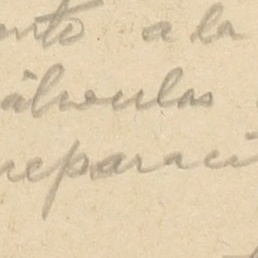 ento a la
álvulas
reparaci